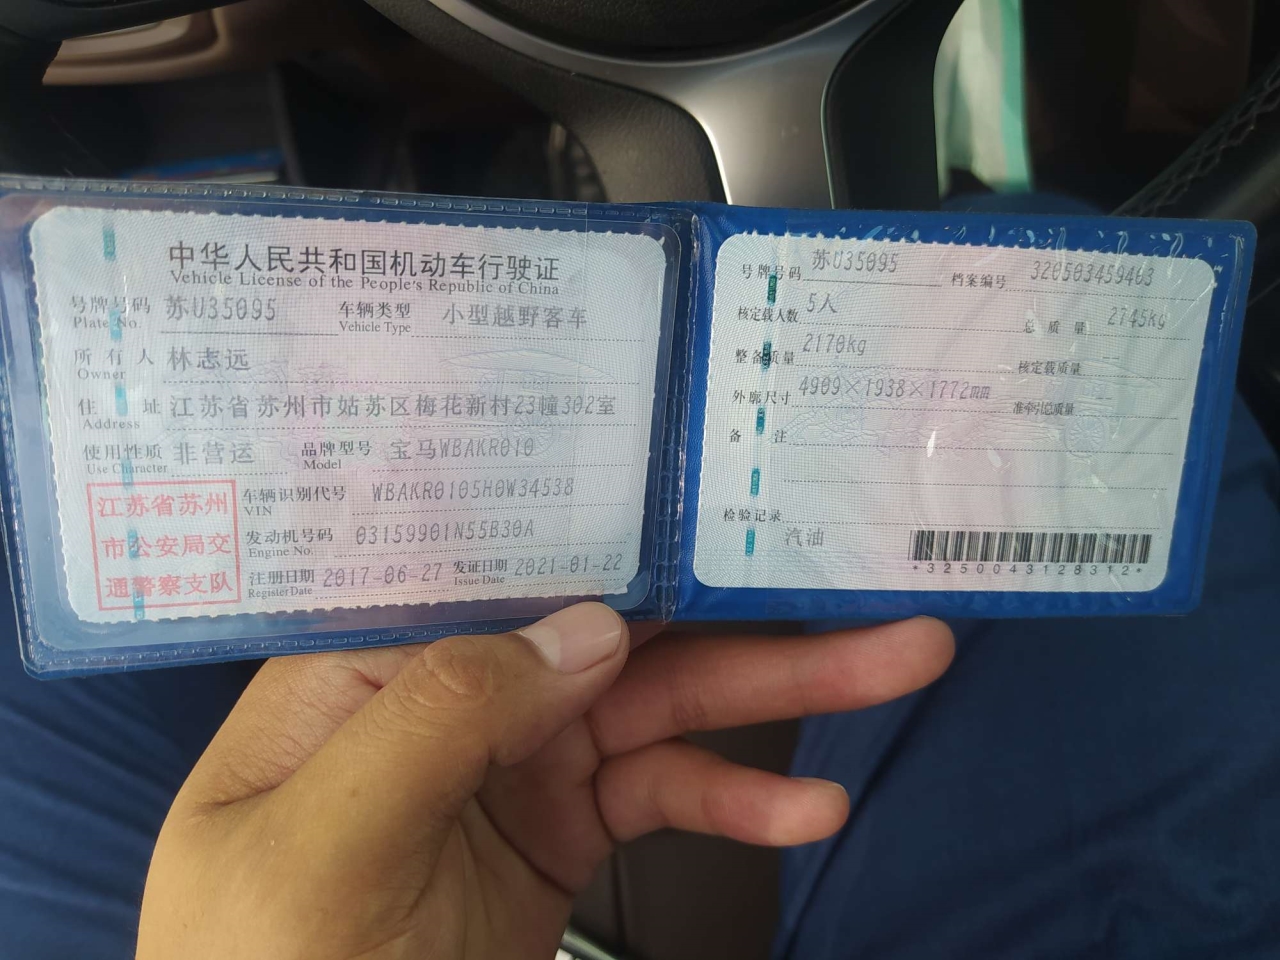 中华人民共和国机动车行驶证
Vehicle License of the People's Republic of China
号牌号码 苏U35095 车辆类型 小型越野客车
Plate No. Vehicle Type
所有人 林志远
Owner
住址 江苏省苏州市姑苏区梅花新村23幢302室
Address
使用性质 非营运 品牌型号 宝马WBAKR010
Use Character Model
江苏省苏州
市公安局交
通警察支队
车辆识别代号 WBAKR0105H0W34538
VIN
发动机号码 03159901N55B30A
Engine No.
注册日期 2017-06-27 发证日期 2021-01-22
Register Date Issue Date
号牌号码 苏U35095 档案编号 320503459403
核定载人数 5人 总质量 2745kg
整备质量 2170kg 核定载质量 --
外廓尺寸 4909×1938×1772mm 准牵引总质量 --
备注
检验记录
汽油
*3250043128312*